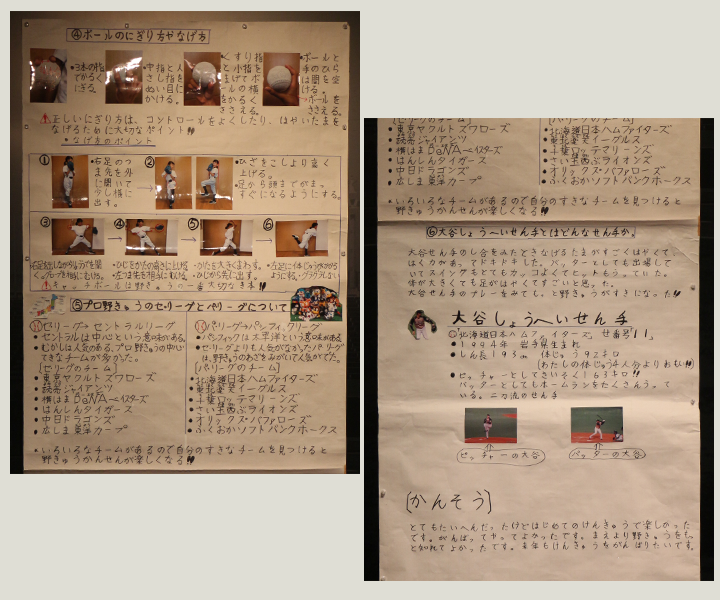 ④ボールのにぎり方やなげ方
•3本の指でかるくにぎる。
•くすり指と小指をまげてボールの横をかるくささえる。
正しいにぎり方は、コントロールをよくしたり、はやいたまを
なげるために大切なポイント!!
•なげ方のポイント
①
•右足のつま先を外に開いて少し横に出す。
②
•ひざをこしより高く上げる。
•足から頭までがまっすぐになるようにする。
③
④
⑤
⑥
キャッチボールは野きゅうの一番大切なきほん!!
⑤プロ野きゅうのセ・リーグとパ・リーグについて
セ・リーグ→セントラルリーグ
•セントラルは中心という意味がある。
•むかしは人気のある、プロ野きゅうの中心
てきなチームが多かった。
[セ・リーグのチーム]
•東京ヤクルトスワローズ
•読売ジャイアンツ
•横はまDeNAベイスターズ
•はんしんタイガース
•中日ドラゴンズ
•広しま東洋カープ
パ・リーグ→パシフィックリーグ
•パシフィックは太平洋という意味がある
•セ・リーグよりも人気がなかったパ・リーグ
は、野きゅうのわざをみがいて人気がでた。
[パ・リーグのチーム]
•北海道日本ハムファイターズ
•東北楽天イーグルス
•千葉ロッテマリーンズ
•さい玉西ぶライオンズ
•オリックス・バファローズ
•ふくおかソフトバンクホークス
•いろいろなチームがあるので自分のすきなチームを見つけると
野きゅうかんせんが楽しくなる!!
[セ・リーグのチーム]
•東京ヤクルトスワローズ
•読売ジャイアンツ
•横はまDeNAベイスターズ
•はんしんタイガース
•中日ドラゴンズ
•広しま東洋カープ
[パ・リーグのチーム]
•北海道日本ハムファイターズ
•東北楽天イーグルス
•千葉ロッテマリーンズ
•さい玉西ぶライオンズ
•オリックス・バファローズ
•ふくおかソフトバンクホークス
•いろいろなチームがあるので自分のすきなチームを見つけると
野きゅうかんせんが楽しくなる!!
⑥大谷しょうへいせん手とはどんなせん手か。
大谷せん手のし合をみたときなげるたまがすごくはやくて、
はく力があってドキドキした。バッターとしても出場して
いてスイングもとてもカッコよくてヒットもうっていた。
体が大きくても足がはやくてすごいと思った。
大谷せん手のプレーをみて、もっと野きゅうがすきになった!!
大谷しょうへいせん手
•北海道日本ハムファイターズ せ番号「11」
•1994年 岩手県生まれ
•しん長193cm 体じゅう92キロ
(わたしの体じゅう4人分よりおもい!!)
•ピッチャーとしてさいそく163キロ!!
バッターとしてもホームランをたくさんうって
いる。二刀流のせん手
ピッチャーの大谷
バッターの大谷
[かんそう]
とてもたいへんだったけどはじめてのけんきゅうで楽しかった
です。がんばってやってよかったです。まえより野きゅうをもっ
と知れてよかったです。来年もけんきゅうをがんばりたいです。